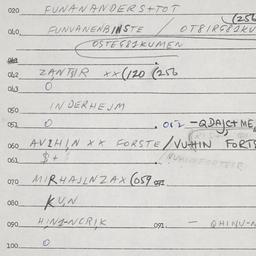 020 FUNANANDERS+TOT (256
040 FUNVANENBINSTE / OT81RG82KU
(OSTEG81KUMEN
062 ZANTUR xx (120 (256
063 0
050 INDERHEJM
051 0 . 052 -QDAJC+ME
060 AVIHIN XX FORSTE/VUHIN FORTS
061 $+
070 MIRHAJLNZAX (059 071
080 KUN
090 HINJ-NCRIK 091. - QHINU-N
100 0